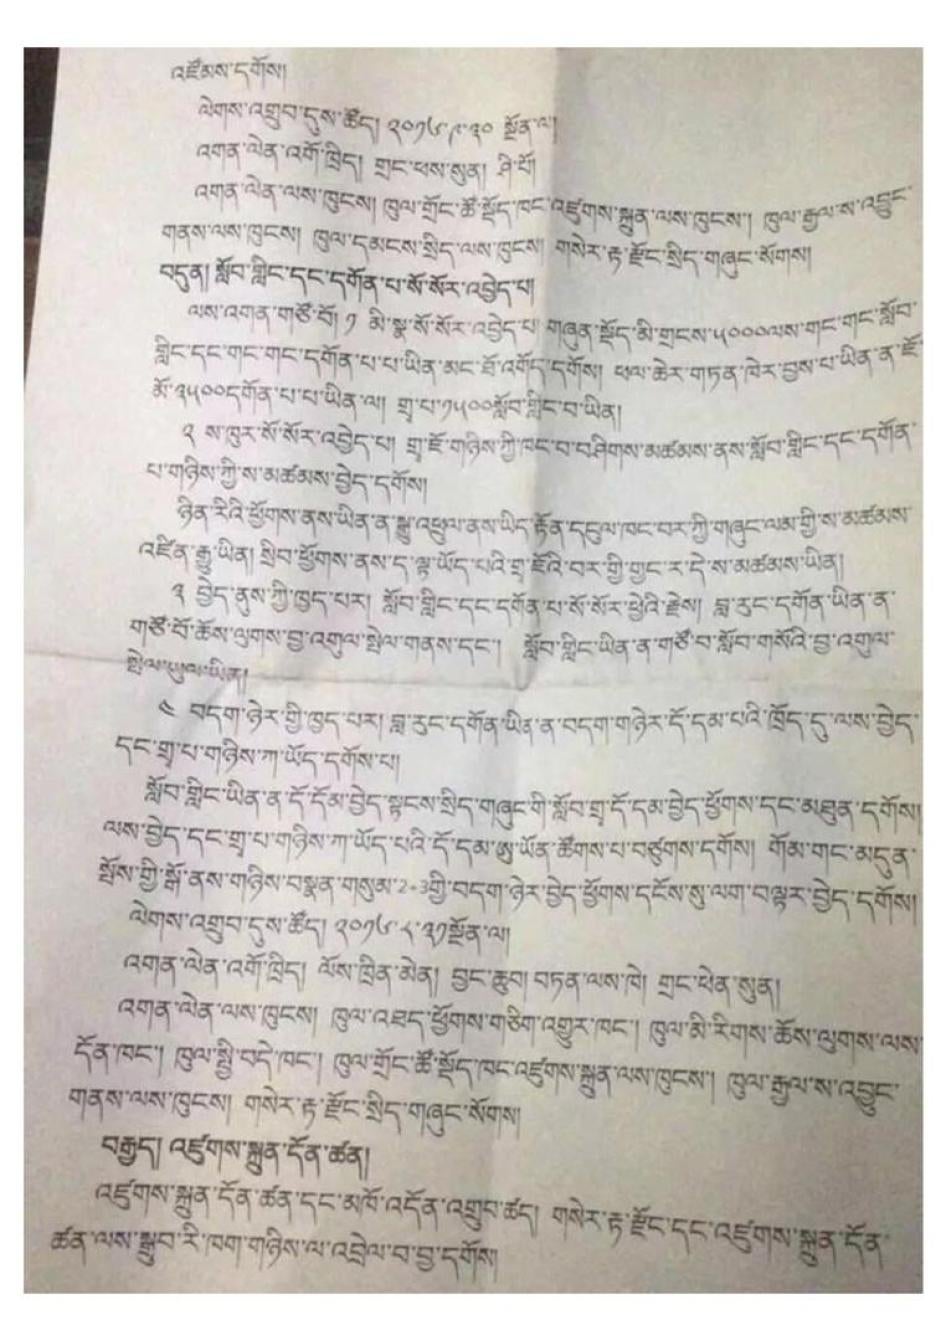 འཛོམས་དགོས།
ལེགས་འགྲུབ་དུས་ཚོད། ༢༠༡༦.༩.༣༠ སྔོན་ལ།
འགན་ལེན་འགོ་ཁྲིད། གྲང་ཕས་སུན། ཤི་པོ།
འགན་ལེན་ལས་ཁུངས། ཁུལ་གྲོང་ཚོ་སྡོད་ཁང་འཛུགས་སྐྲུན་ལས་ཁུངས། ཁུལ་རྒྱལ་ས་འབྱུང་
གནས་ལས་ཁུངས། ཁུལ་དམངས་སྲིད་ལས་ཁུངས། གསེར་རྟ་རྫོང་སྲིད་གཞུང་སོགས།
བདུན། སློབ་གླིང་དང་དགོན་པ་སོ་སོར་འབྱེད་པ།
ལས་འགན་གཙོ་བོ། ༡ མི་སྣ་སོ་སོར་འབྱེད་པ། གཞུན་སྡོད་མི་གྲངས་༥༠༠༠ལས་གང་གང་སློབ་
གླིང་དང་གང་གང་དགོན་པ་པ་ཡིན་མང་ཐོ་འགོད་དགོས། ཕལ་ཆེར་གཏན་ཁེར་བྱས་པ་ཡིན་ན་ཇོ་
མོ་༣༥༠༠དགོན་པ་པ་ཡིན་ལ། གྲྭ་པ་༡༥༠༠སློབ་གླིང་བ་ཡིན།
༢ ས་ཁུར་སོ་སོར་འབྱེད་པ། གྲྭ་ཇོ་གཉིས་ཀྱི་ཁང་བ་བཤིགས་མཚམས་ནས་སློབ་གླིང་དང་དགོན་
པ་གཉིས་ཀྱི་ས་མཚམས་བྱེད་དགོས།
ཉིན་རིའི་ཕྱོགས་ནས་ཡིན་ན་སྒྱུ་འཕྲུལ་ནས་ཡིད་རྟོན་དངུལ་ཁང་བར་ཀྱི་གཞུང་ལམ་གྱི་ས་མཚམས་
འཛིན་རྒྱུ་ཡིན། སྲིབ་ཕྱོགས་ནས་ད་ལྟ་ཡོད་པའི་གྲྭ་ཇོའི་བར་གྱི་གྱང་ར་དེ་ས་མཚམས་ཡིན།
༣ བྱེད་ནུས་ཀྱི་ཁྱད་པར། སློབ་གླིང་དང་དགོན་པ་སོ་སོར་ཕྱེའི་རྗེས། བླ་རུང་དགོན་ཡིན་ན་
གཙོ་བོ་ཆོས་ལུགས་བྱ་འགུལ་སྤེལ་གནས་དང་། སློབ་གླིང་ཡིན་ན་གཙོ་བ་སློབ་གསོའི་བྱ་འགུལ་
སྤེལ་ཡུལ་ཡིན།
༤ བདག་ཉེར་གྱི་ཁྱད་པར། བླ་རུང་དགོན་ཡིན་ན་བདག་གཉེར་དོ་དམ་པའི་ཁྲོད་དུ་ལས་བྱེད་
དང་གྲྭ་པ་གཉིས་ཀ་ཡོད་དགོས་པ།
སློབ་གླིང་ཡིན་ན་དོ་དོམ་བྱེད་སྟངས་སྲིད་གཞུང་གི་སློབ་གྲྭ་དོ་དམ་བྱེད་ཕྱོགས་དང་མཐུན་དགོས།
ལས་བྱེད་དང་གྲྭ་པ་གཉིས་ཀ་ཡོད་པའི་དོ་དམ་ཨུ་ཡོན་ཚོགས་པ་བཙུགས་དགོས། གོམ་གང་མདུན་
སྤོས་ཀྱི་སྒོ་ནས་གཉིས་བསྣན་གསུམ་2+3གྱི་བདག་ཉེར་བྱེད་ཕྱོགས་དངོས་སུ་ལག་བསྟར་བྱེད་དགོས།
ལེགས་འགྲུབ་དུས་ཚོད། ༢༠༡༦.༨.༣༡སྔོན་ལ།
འགན་ལེན་འགོ་ཁྲིད། ལོས་ཁྲིན་མེན། བྱང་ཆུབ། བཏན་ལས་ཁེ། གྲང་ཕེན་སུན།
འགན་ལེན་ལས་ཁུངས། ཁུལ་འཐང་ཕྱོགས་གཅིག་འགྱུར་ཁང་། ཁུལ་མི་རིགས་ཆོས་ལུགས་ལས་
དོན་ཁང་། ཁུལ་སྤྱི་བདེ་ཁང་། ཁུལ་གྲོང་ཚོ་སྡོད་ཁང་འཛུགས་སྐྲུན་ལས་ཁུངས། ཁུལ་རྒྱལ་ས་འབྱུང་
གནས་ལས་ཁུངས། གསེར་རྟ་རྫོང་སྲིད་གཞུང་སོགས།
བརྒྱད། འཛུགས་སྐྲུན་དོན་ཚན།
འཛུགས་སྐྲུན་དོན་ཚན་དང་མཁོ་འདོན་འགྲུབ་ཚད། གསེར་རྟ་རྫོང་དང་འཛུགས་སྐྲུན་དོན་
ཚན་ལས་སྒྲུབ་རེ་ཁག་གཉིས་ལ་འབྲེལ་བ་བྱ་དགོས།